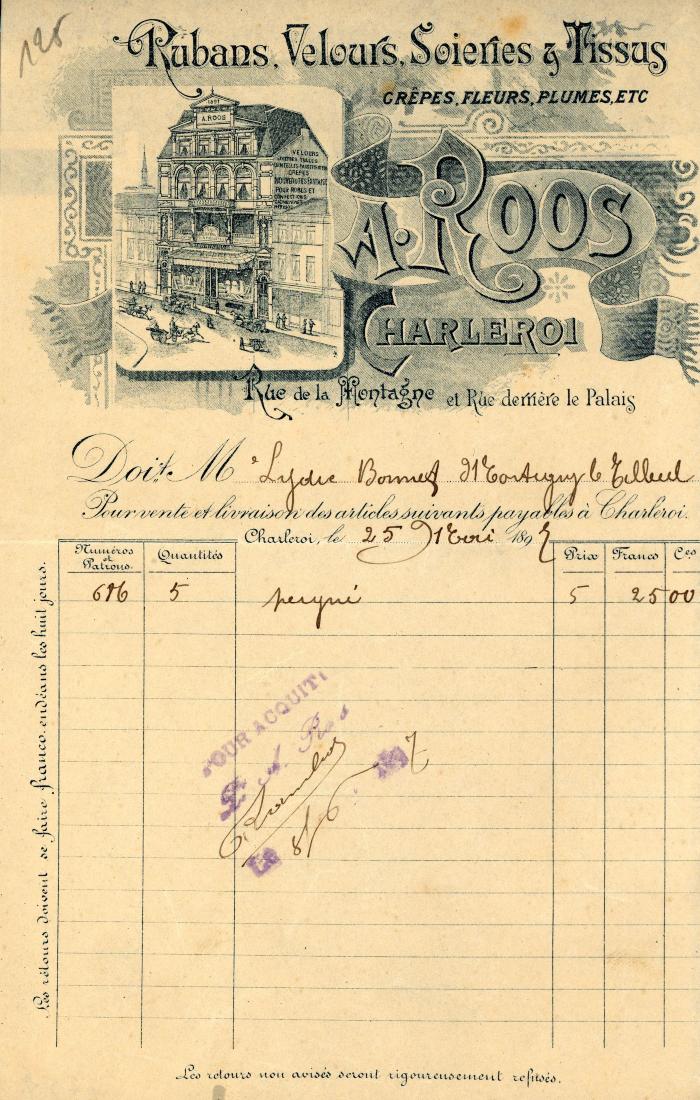 125
Rubans, Velours, Soieries & Tissus
CRÊPES, FLEURS, PLUMES, ETC
1897
A. ROOS
VELOURS
CRÊPES
NOUVEAUTÉS FANTAISIE
POUR ROBES ET
CONFECTIONS
A. ROOS
CHARLEROI
Rue de la Montagne et Rue derrière le Palais
Doit M e Lydie Bonnet Montigny le Tilleul
Pour vente et livraison des articles suivants payables à Charleroi.
Charleroi, le 25 Mai 1897
Numéros et Patrons Quantités Prix Francs Ces
686 5 peigné 5 25 00
POUR ACQUIT
Le 8/6 97
Les retours doivent se faire franco endéans les huit jours.
Les retours non avisés seront rigoureusement refusés.